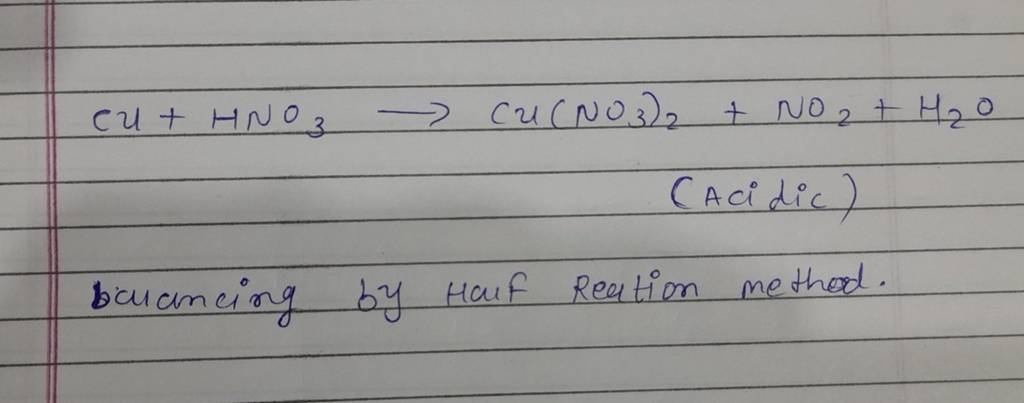 Cu + HNO₃ → Cu(NO₃)₂ + NO₂ + H₂O
(Acidic)
balancing by Half Reation method.